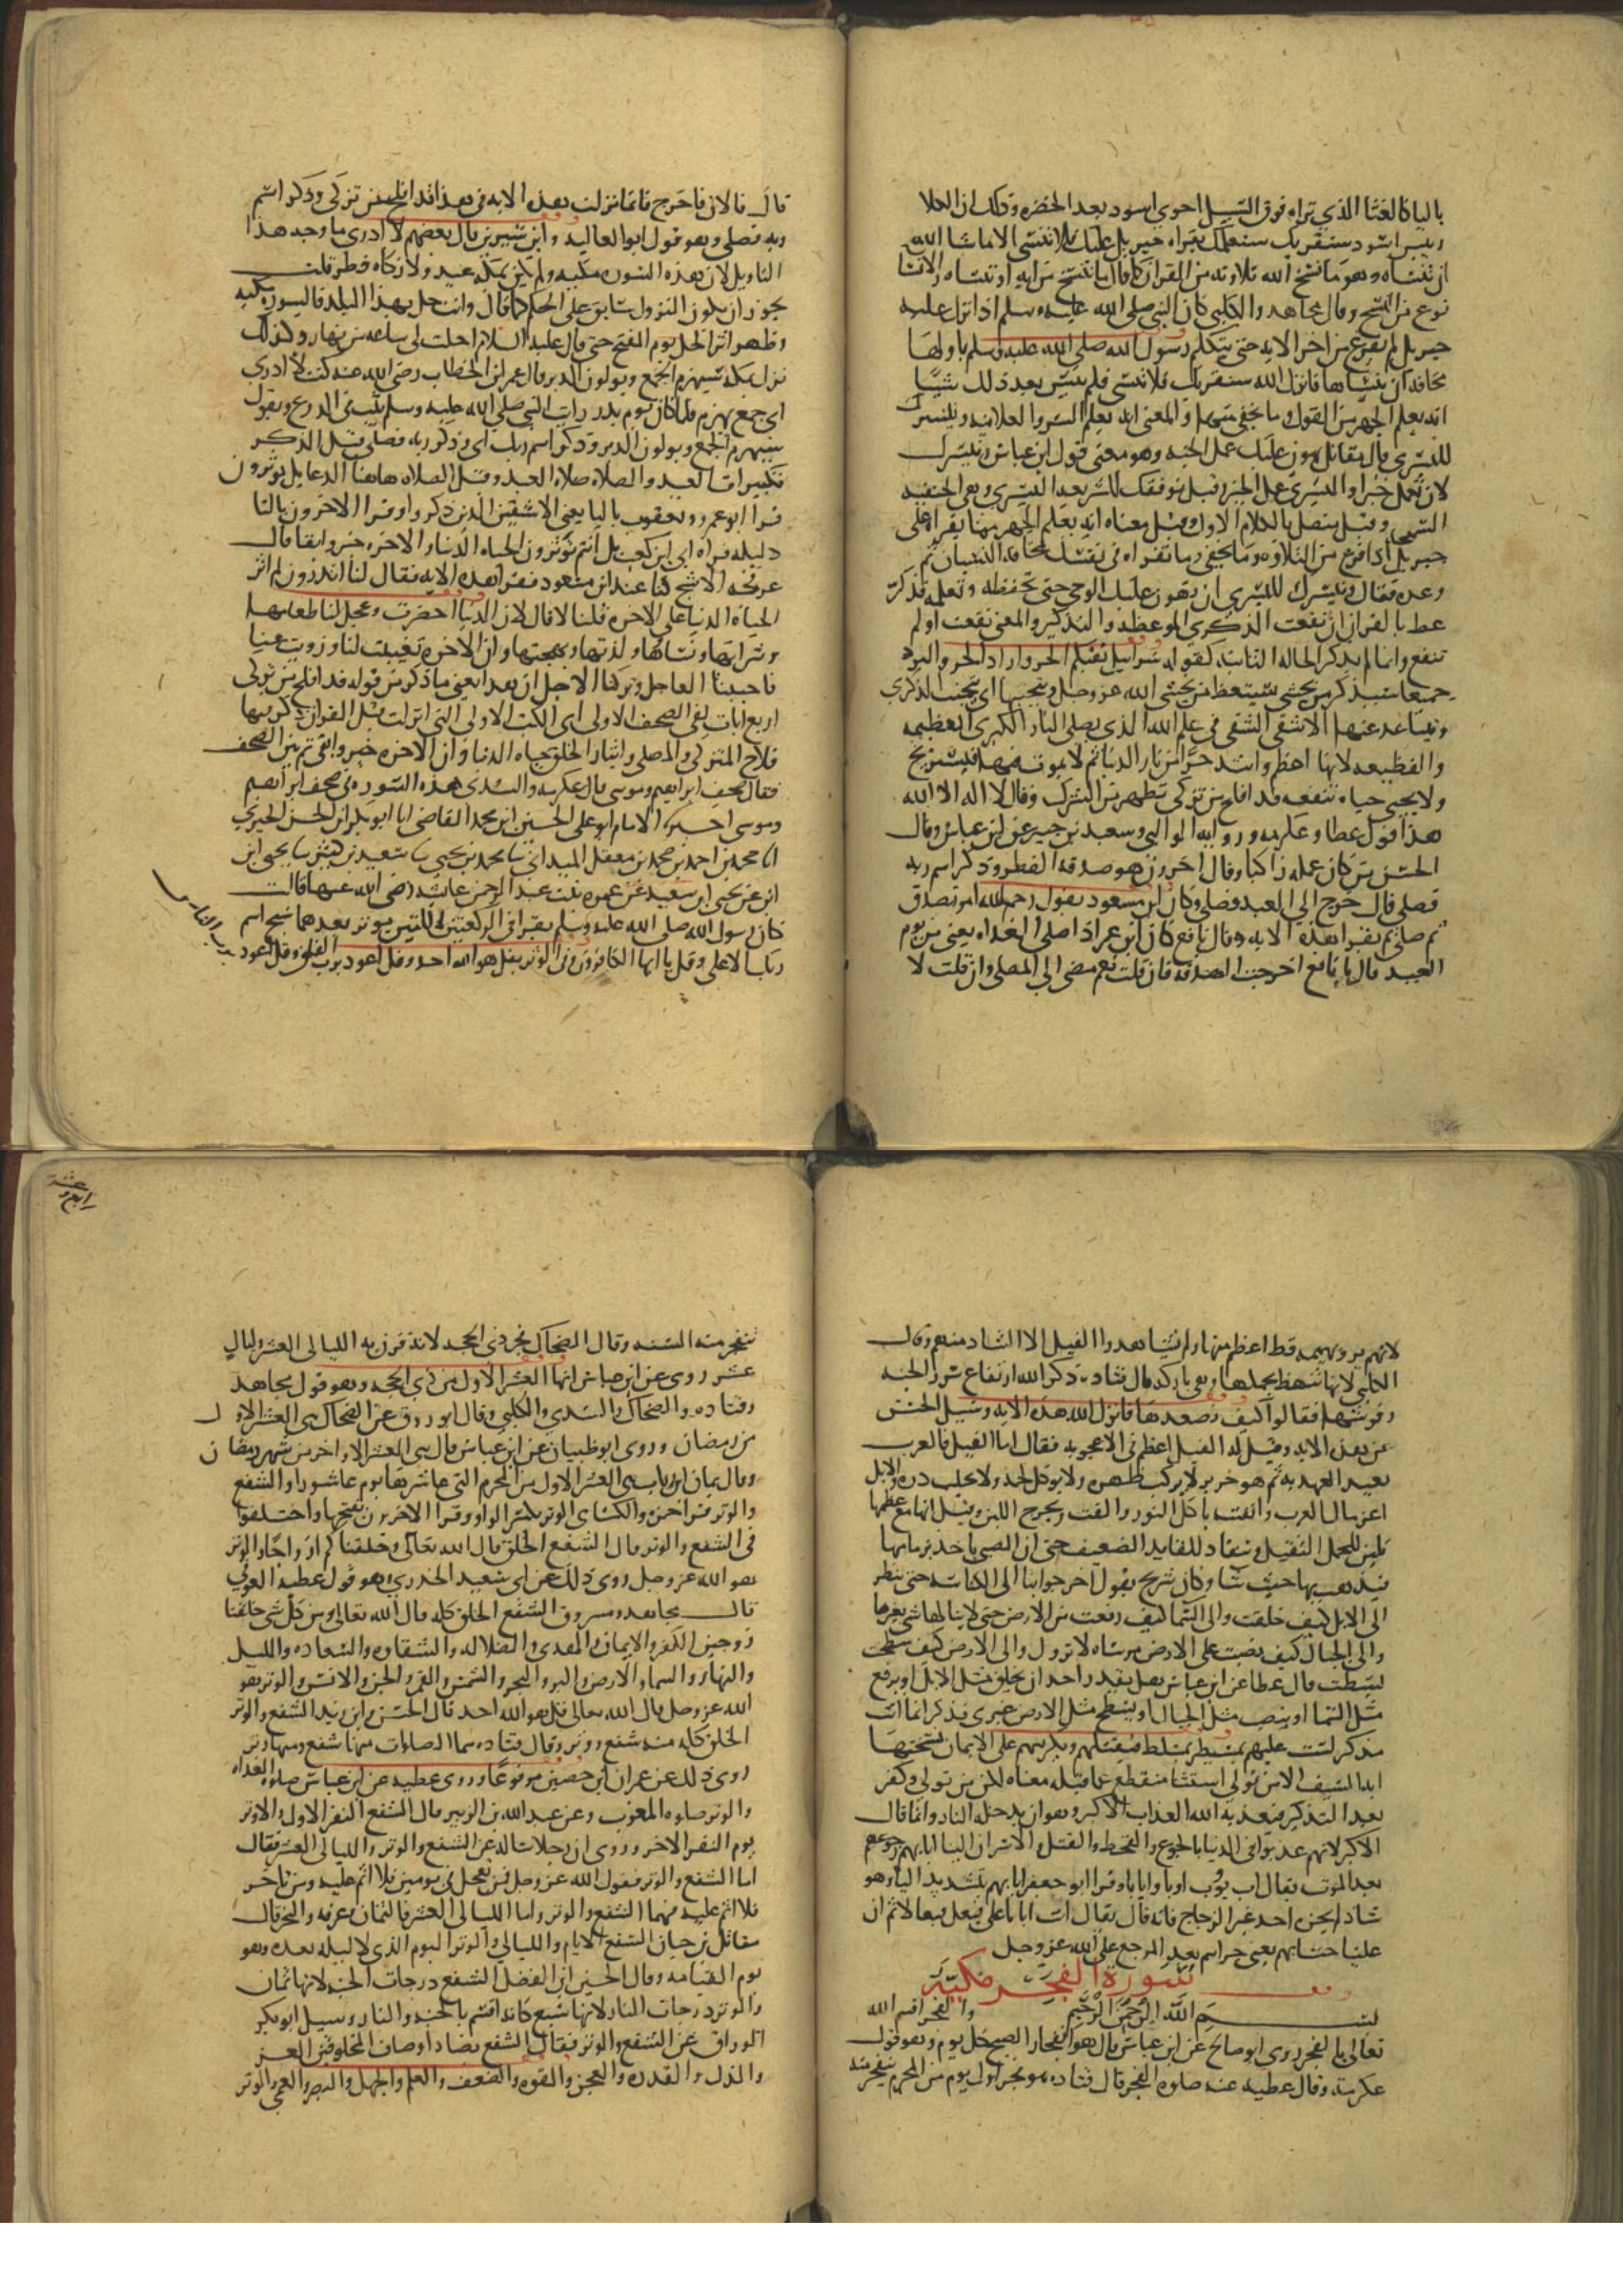 بالیا کالغثا الذي تراه فوق السيل احوي اسود بعد الخضره وذلك ان الكلا
ويبس اسود سنقريك سنعلمك بقراه جبريل عليك فلا تنسى الا ما شا الله
ان تنساه وهو ما نسخ الله تلاوته من القران كما قال ما ننسخ من ايه او ننساه والانسا
نوع من النسخ وقال مجاهد والكلبي كان النبي صلى الله عليه وسلم اذا نزل عليه
جبريل لم يفرغ من اخر الايه حتى يتكلم رسول الله صلى الله عليه وسلم باولها
مخافه ان ينساها فانزل الله سنقريك فلا تنسى فلم ينس بعد ذلك شيا
انه يعلم الجهر من القول وما يخفى منهما والمعنى انه يعلم السر والعلانيه ونيسرك
لليسرى قال مقاتل نهون عليك عمل الجنه وهو معنى قول ابن عباس ونيسرك
لان تعمل خيرا واليسرى عمل الخير وقيل نوفقك للشريعه اليسرى وهي الحنيفيه
السمحى وقيل يتصل بالكلام الاول وقيل معناه انه يعلم الجهر مما يقراه على
جبريل اذا فرغ من التلاوه وما يخفى وما تقراه في نفسك مخافه النسيان ثم
وعده فقال ونيسرك لليسرى ان نهون عليك الوحي حتى تحفظه وتعلمه فذكر
عظ بالقران ان نفعت الذكرى الموعظه والتذكير والمعنى نفعت او لم
تنفع وانما لم يذكر الحاله الثانيه كقوله سرابيل تقيكم الحر واراد الحر والبرد
جميعا سيذكر من يخشى سيتعظ من يخشى الله عز وجل ويتجنبها اي يتجنب الذكرى
ويتباعد عنها الاشقى الشقي في علم الله الذي يصلى النار الكبرى العظيمه
والفظيعه لانها اعظم واشد حرا من نار الدنيا ثم لا يموت فيها فيستريح
ولا يحيى حياه تنفعه قد افلح من تزكى تطهر من الشرك وقال لا اله الا الله
هذا قول عطا وعكرمه وروايه الوالبي وسعيد بن جبير عن ابن عباس وقال
الحسن من كان عمله زاكيا وقال اخرون هو صدقه الفطر وذكر اسم ربه
فصلى قال خرج الى العيد فصلى وكان ابن مسعود يقول رحم الله امرا تصدق
ثم صلى ثم يقرا هذه الايه وقال نافع كان ابن عمر اذا صلى الغداه يعني من يوم
العيد قال يا نافع اخرجت الصدقه فان قلت نعم مضى الى المصلى وان قلت لا
قال فالان فاخرج فانما نزلت هذه الايه في هذا قد افلح من تزكى وذكر اسم
ربه فصلى وهو قول ابو العاليه وابن سيرين قال بعضهم لا ادري ما وجه هذا
التاويل لان هذه السوره مكيه ولم يكن بمكه عيد ولا زكاه فطر قلت
يجوز ان يكون النزول سابق على الحكم كما قال وانت حل بهذا البلد فالسوره مكيه
وظهر اثر الحل يوم الفتح حتى قال عليه السلام احلت لي ساعه من نهار وكذلك
نزل بمكه سيهزم الجمع ويولون الدبر قال عمر ابن الخطاب رضي الله عنه كنت لا ادري
اي جمع يهزم فلما كان يوم بدر رايت النبي صلى الله عليه وسلم يثب في الدرع ويقول
سيهزم الجمع ويولون الدبر وذكر اسم ربه اي وذكر ربه فصلى قيل الذكر
تكبيرات العيد والصلاه صلاه العيد وقيل الصلاه هاهنا الدعا بل يوثرون
قرا ابو عمرو ويعقوب باليا يعني الاشقين الذين ذكروا وقرا الاخرون بالتا
دليله قراه ابي ابن كعب بل انتم توثرون الحياه الدنيا والاخره خير وابقى قال
عرفجه الاشجعي كنا عند ابن مسعود فقرا هذه الايه فقال لنا اتدرون لم اثر
الحياه الدنيا على الاخره قلنا لا قال لان الدنيا احضرت وعجل لنا طعامها
وشرابها ونساها ولذتها وبهجتها وان الاخره تغيبت لنا وزويت عنا
فاحببنا العاجل وتركنا الاجل ان هذا يعني ما ذكر من قوله قد افلح من تزكى
اربع ايات لفي الصحف الاولى اي الكتب الاولى التي انزلت قبل القران ذكر فيها
فلاح المتزكي والمصلي وايثار الخلق حياه الدنيا وان الاخره خير وابقى ثم بين الصحف
فقال صحف ابراهيم وموسى قال عكرمه والسدي هذه السوره في صحف ابراهيم
وموسى اخبرنا الامام ابو علي الحسين ابن محمد القاضي انا ابو بكر ابن الحسن الحيري
انا محمد بن احمد بن محمد بن معقل الميداني ثنا محمد بن يحيى ثنا سعيد بن كثير ثنا يحيى ابن
ايوب عن يحيى ابن سعيد عن عمره بنت عبد الرحمن عن عايشه رضي الله عنها قالت
كان رسول الله صلى الله عليه وسلم يقرا في الركعتين اللتين يوتر بعدهما سبح اسم
ربك الاعلى وقل يا ايها الكافرون وفي الوتر بقل هو الله احد وقل اعوذ برب الفلق وقل اعوذ
برب الناس
لانهم يروا بهيمه قط اعظم منها ولم يشاهدوا الفيل الا الشاد منهم وقال
الكلبي لانها تنهض بحملها وهي باركه قال قتاده ذكر الله ارتفاع سرر الجنه
وفرشها فقالوا كيف نصعدها فانزل الله هذه الايه وسيل الحسن
عن هذه الايه وقيل له الفيل اعظم في الاعجوبه فقال اما الفيل فالعرب
بعيد العهد به ثم هو خنزير لا يركب ظهره ولا يوكل لحمه ولا يحلب دره والابل
اعز مال العرب وانفسه ياكل النوى والقت ويخرج اللبن وقيل انها مع عظمها
تلين للحمل الثقيل وتنقاد للقايد الضعيف حتى ان الصبي ياخذ بزمامها
فيذهب بها حيث شا وكان شريح يقول اخرجوا بنا الى الكناسه حتى ننظر
الى الابل كيف خلقت والى السما كيف رفعت من الارض حتى لا ينالها شي بغيرها
والى الجبال كيف نصبت على الارض مرساه لا تزول والى الارض كيف سطحت
بسطت قال عطا عن ابن عباس هل يقدر احد ان يخلق مثل الابل او يرفع
مثل السما او ينصب مثل الجبال او يسطح مثل الارض غيري فذكر انما انت
مذكر لست عليهم بمسيطر بمسلط فتقتلهم وتكرههم على الايمان نسختها
ايه السيف الا من تولى استثنا منقطع عما قبله معناه لكن من تولى وكفر
بعد التذكير فيعذبه الله العذاب الاكبر وهو ان يدخله النار وانما قال
الاكبر لانهم عذبوا في الدنيا بالجوع والقحط والقتل والاسر ان الينا ايابهم رجوعهم
بعد الموت يقال اب يوب اوبا وايابا وقرا ابو جعفر ايابهم بتشديد اليا وهو
شاذ لم يجزه احد غير الزجاج فانه قال يقال ايب ايابا على فيعل فيعالا ثم ان
علينا حسابهم يعني جزاهم بعد المرجع على الله عز وجل
سورة الفجر مكية
بسم الله الرحمن الرحيم والفجر اقسم الله
تعالى بالفجر روى ابو صالح عن ابن عباس قال هو انفجار الصبح كل يوم وهو قول
عكرمه وقال عطيه عنه صلوه الفجر قال قتاده هو فجر اول يوم من المحرم ينفجر منه
تنفجر منه السنه وقال الضحاك فجر ذي الحجه لانه قرن به الليالي العشر وليال
عشر روى عن ابن عباس انها العشر الاول من ذي الحجه وهو قول مجاهد
وقتاده والضحاك والسدي والكلبي وقال ابو روق عن الضحاك هي العشر الاول
من رمضان وروى ابو ظبيان عن ابن عباس قال هي العشر الاواخر من شهر رمضان
وقال يمان ابن رباب هي العشر الاول من المحرم التي عاشرها يوم عاشورا والشفع
والوتر قرا حمزه والكساي الوتر بكسر الواو وقرا الاخرون بفتحها واختلفوا
في الشفع والوتر قال الشفع الخلق قال الله تعالى وخلقناكم ازواجا والوتر
هو الله عز وجل روى ذلك عن ابي سعيد الخدري وهو قول عطيه العوفي
قال مجاهد ومسروق الشفع الخلق كله قال الله تعالى ومن كل شي خلقنا
زوجين الكفر والايمان والهدى والضلاله والشقاوه والسعاده والليل
والنهار والسما والارض والبر والبحر والشمس والقمر والجن والانس والوتر هو
الله عز وجل قال الله تعالى قل هو الله احد قال الحسن وابن زيد الشفع والوتر
الخلق كله منه شفع ووتر وقال قتاده هما الصلوات منها شفع ومنها وتر
روى ذلك عن عمران ابن حصين مرفوعا وروى عطيه عن ابن عباس صلوه الغداه
والوتر صلوه المغرب وعن عبد الله بن الزبير قال الشفع النفر الاول والوتر
يوم النفر الاخر وروى ان رجلا ساله عن الشفع والوتر والليالي العشر فقال
اما الشفع والوتر فقول الله عز وجل فمن تعجل في يومين فلا اثم عليه ومن تاخر
فلا اثم عليه فهما الشفع والوتر واما الليالي العشر فالثمان وعرفه والنحر قال
مقاتل بن حيان الشفع الايام والليالي والوتر اليوم الذي لا ليله بعده وهو
يوم القيامه وقال الحسين ابن الفضل الشفع درجات الجنه لانها ثمان
والوتر دركات النار لانها سبع كانه اقسم بالجنه والنار وسيل ابو بكر
الوراق عن الشفع والوتر فقال الشفع تضاد اوصاف المخلوقين العز
والذل والقدره والعجز والقوه والضعف والعلم والجهل والبصر والعمى والوتر